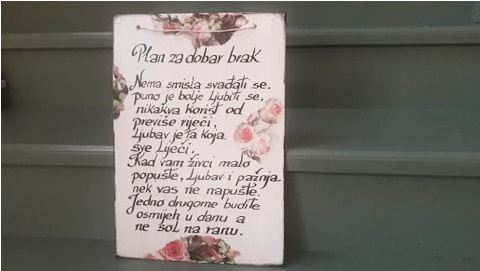 Plan za dobar brak
Nema smisla svađati se,
puno je bolje Ljubiti se,
nikakva korist od
previše riječi,
Ljubav je ta koja
sve Liječi.
Kad vam živci malo
popuste, Ljubav i pažnja
nek vas ne napuste.
Jedno drugome budite
osmijeh u danu a
ne sol na ranu.